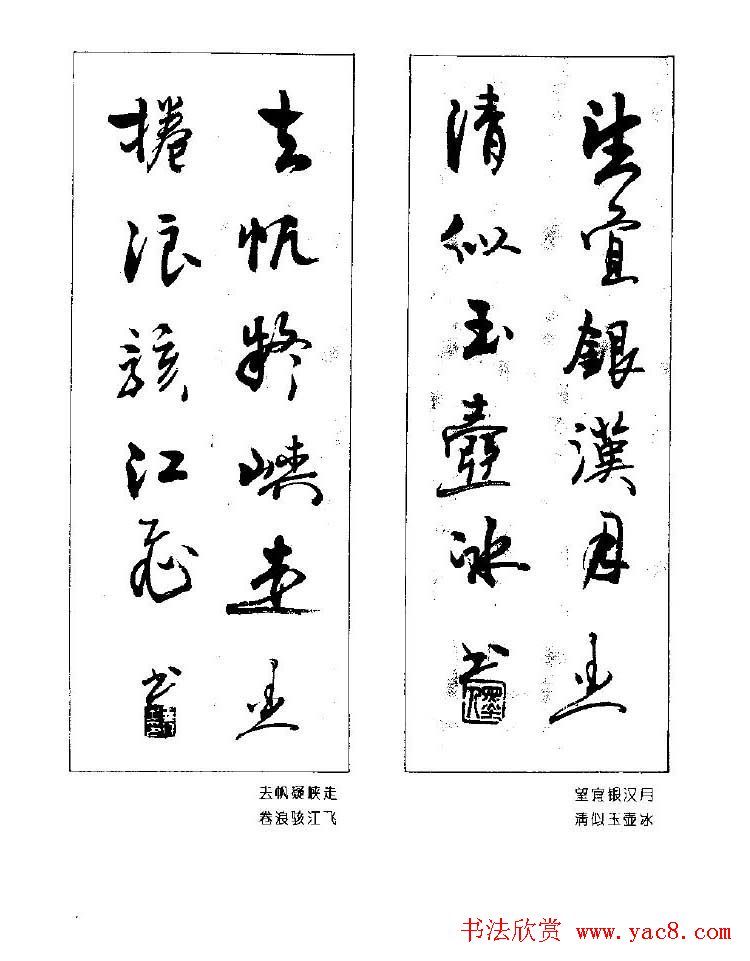 望宜銀漢月
清似玉壺冰 书
去帆疑峽走
捲浪駭江飛 书
望宜银汉月
清似玉壶冰
去帆疑峡走
卷浪骇江飞
书法欣赏 www.yac8.com